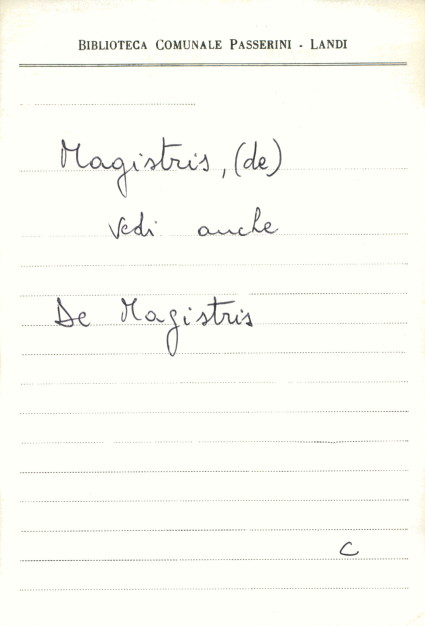 BIBLIOTECA COMUNALE PASSERINI - LANDI
Magistris, (de)
vedi anche
De Magistris
C